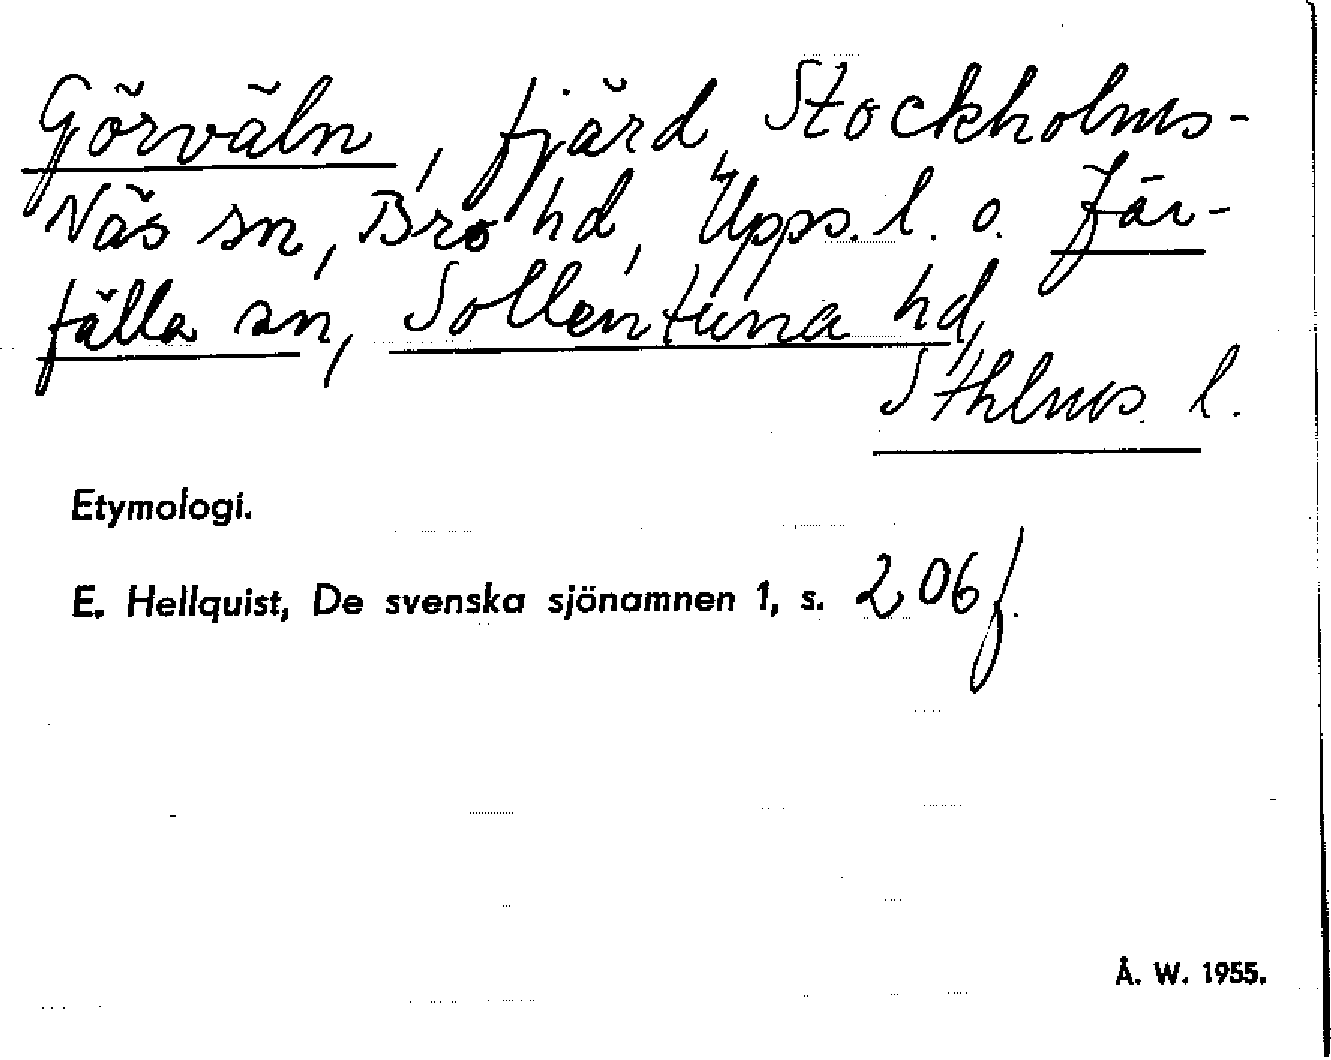 Görväln, fjärd, Stockholms-
Näs sn, Bro hd, Upps. l. o. Jär-
fälla sn, Sollentuna hd,
Sthlms l.
Etymologi.
E. Hellquist, De svenska sjönamnen 1, s. 206 f.
Å. W. 1955.